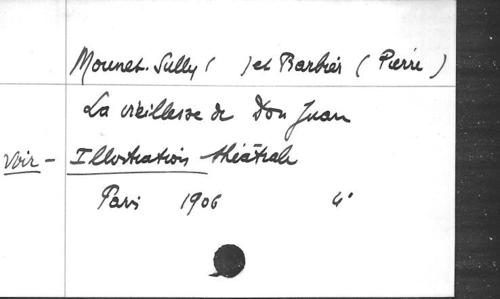 Mounet-Sully (   ) et Barbier (Pierre)
La vieillesse de Don Juan
voir - Illustration théâtrale
Paris 1906 4°